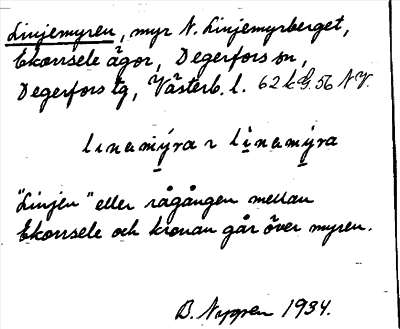 Linjemyren, myr N. Linjemyrberget,
Ekorrsele ägor, Degerfors sn,
Degerfors tg, Västerb. l. 62 k G. 56 NV.
lınamy̱ra ɿ lı̱namy̱ra
"Linjen" eller rågången mellan
Ekorrsele och kronan går över myren.
B. Nygren 1934.